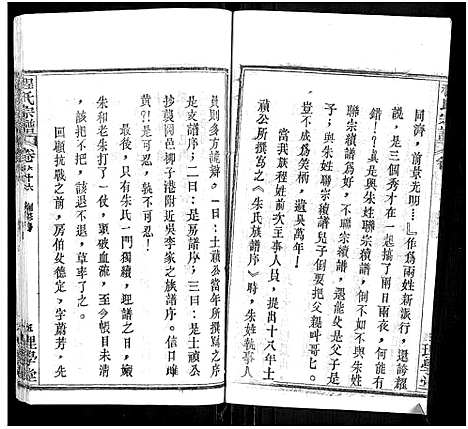 同濟，前景光明…』作爲兩姓新派行，還誇耀
說，是三個秀才在一起搞了兩日兩夜，何等可
惜！真是其與朱姓聯宗續譜，倒不如不與朱姓
聯宗續譜，還能父是父子是
子，與朱姓聯宗續譜兒子倒要把父親叫哥七。
豈不成爲笑柄，遺臭萬年！
當我族程姓前次主事人員，提出十八年士
禛公所撰寫之《朱氏族譜序》時，朱姓執事人
是則多方詭辯。一曰：士禛公當年所撰寫之序
是支譜序；二曰：是房譜序；三曰：是士禛公
抄襲岡邑柳子港附近吳李家之族譜序。信口雌
黃?!是可忍孰不可忍。
最後，只有朱氏一門獨續，迎譜之日，娥
朱和老朱打了一仗，頭破血流，至今賬目未清
，該把不把，該退不退，草率了之。
回顧抗戰之前，房伯女德定，字蔚芳，
程氏宗譜
卷
理學堂